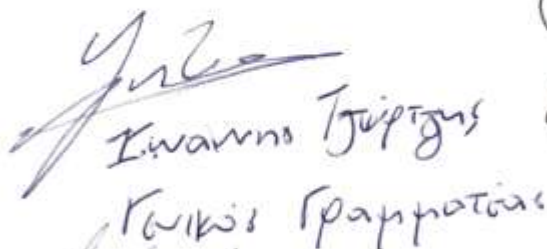 Ιωάννης Τζώρτζης
Γενικός Γραμματέας